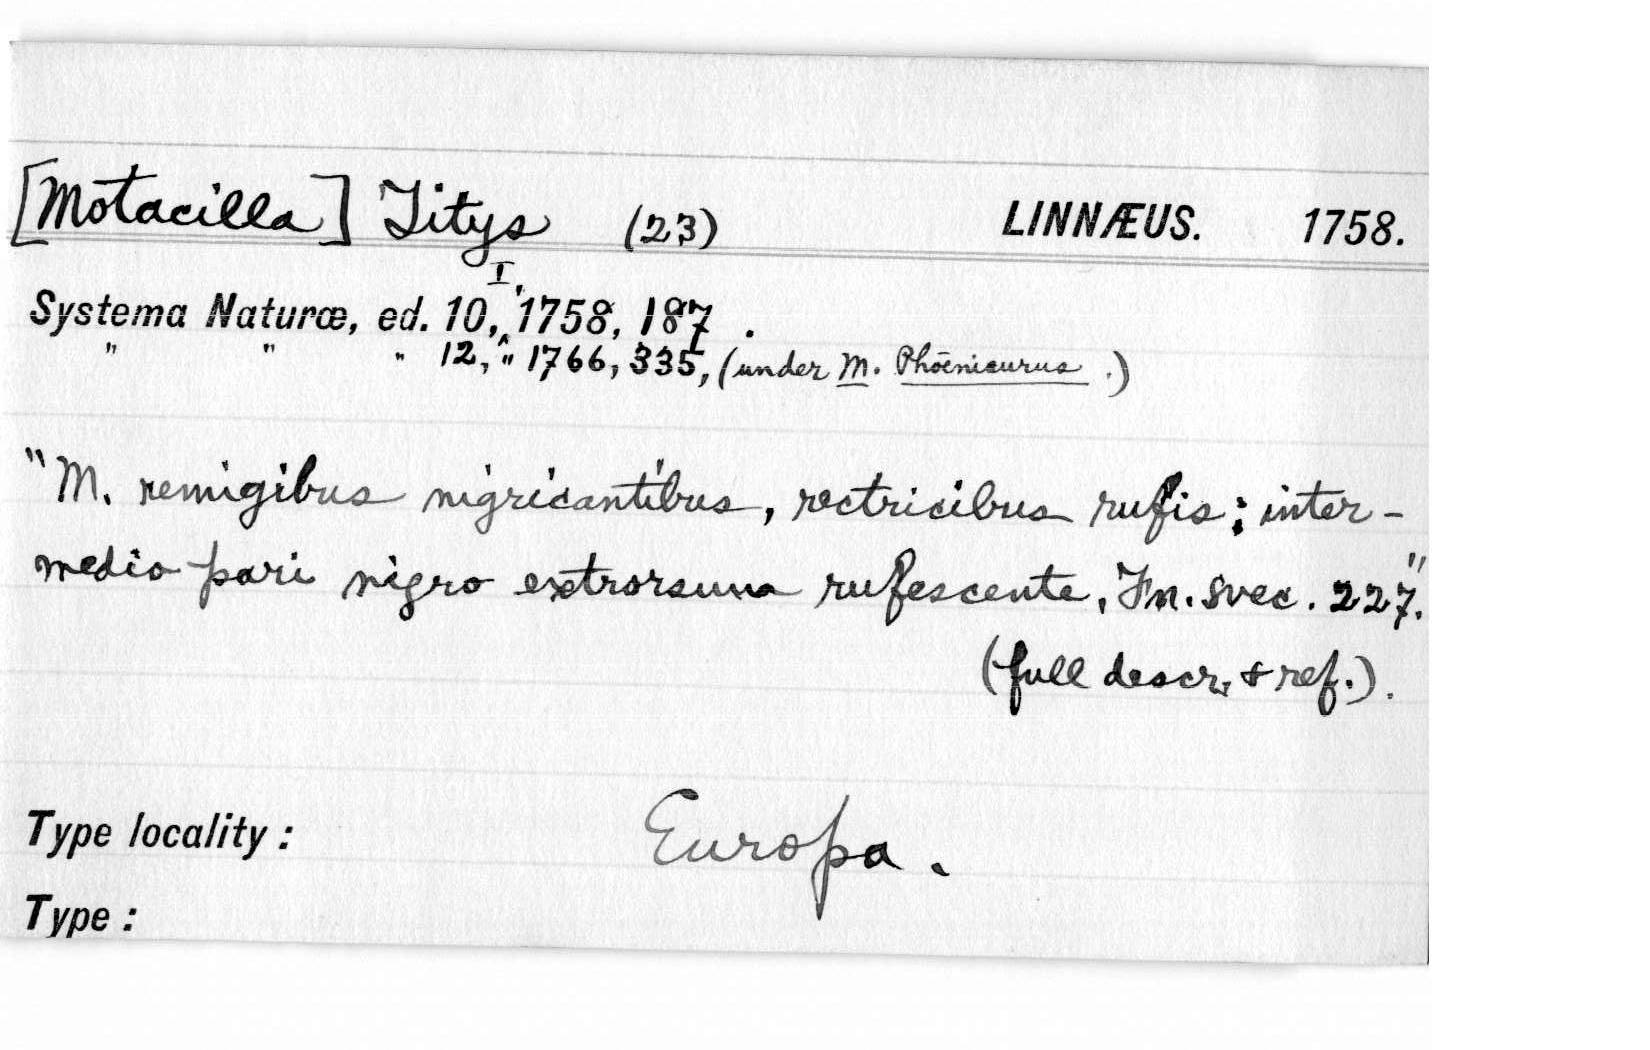 [Motacilla] Titys (23) LINNÆUS. 1758.
Systema Naturæ, ed. 10, I, 1758, 187.
" " " 12, " 1766, 335, (under M. Phœnicurus.)
"M. remigibus nigricantibus, rectricibus rufis; inter-
medio pari nigro extrorsum rufescente, Fn. svec. 227."
(full descr. & ref.).
Type locality: Europa.
Type: